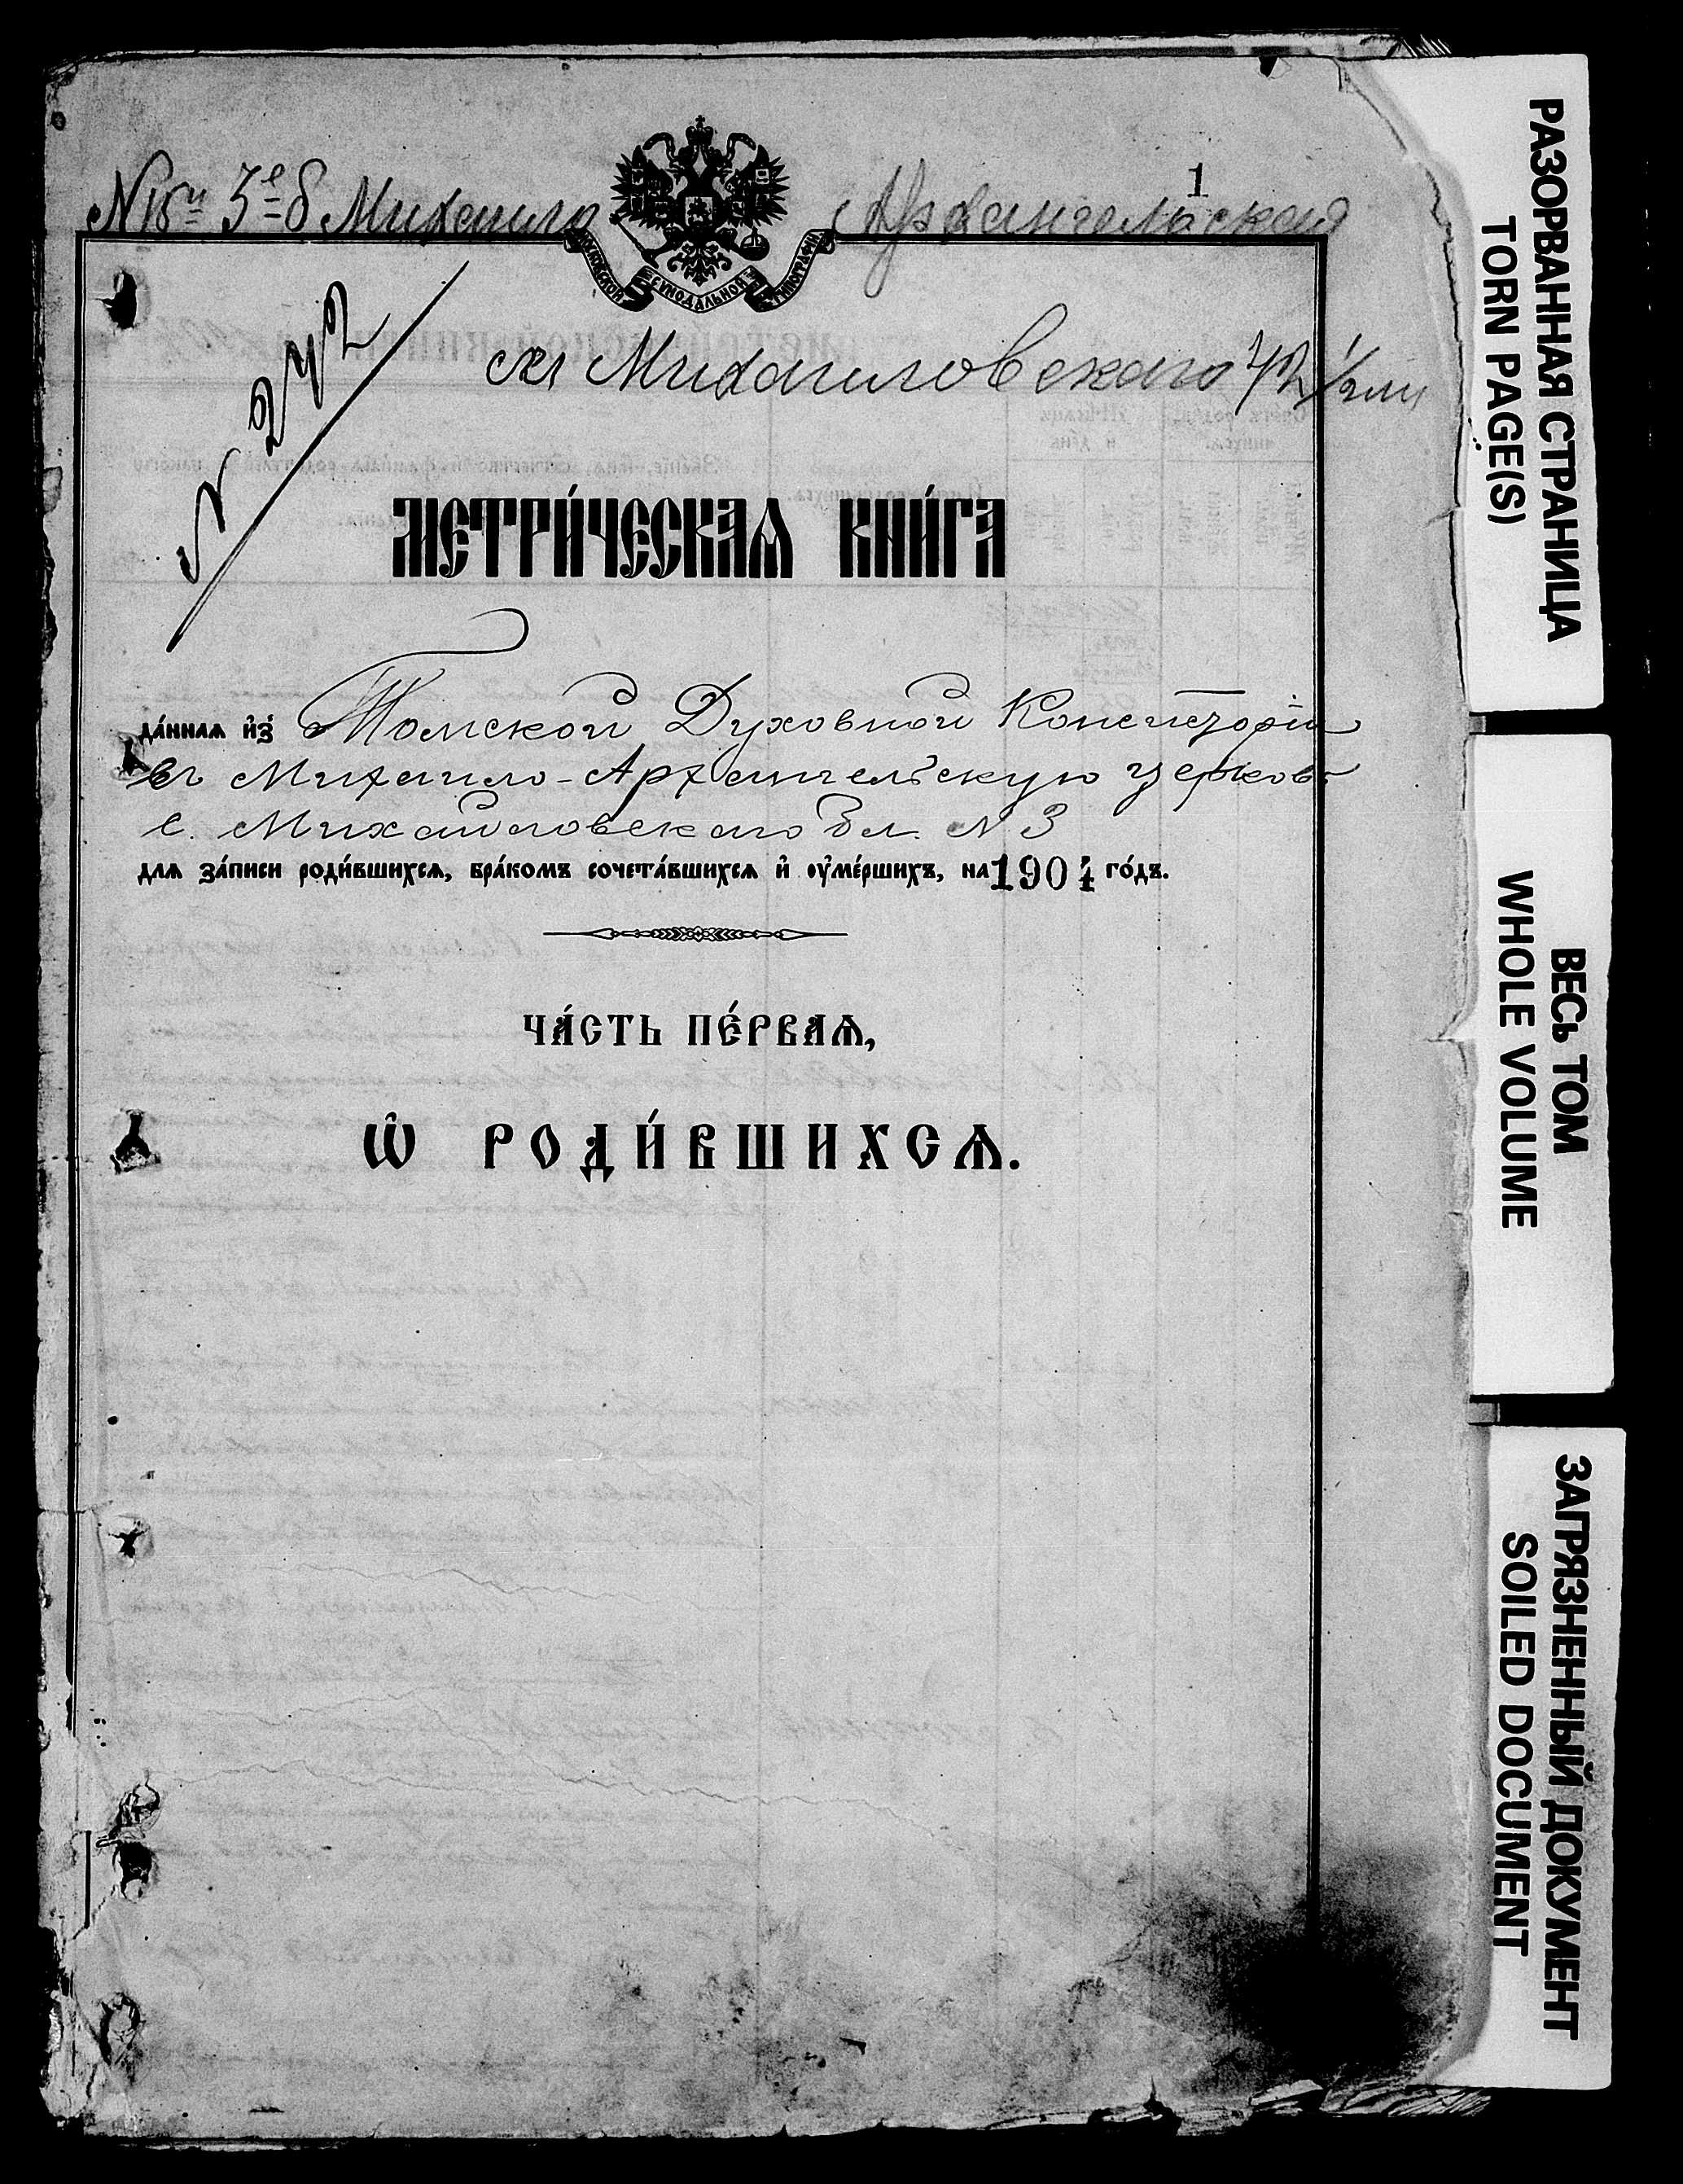 1
№ 15и 3е б Михаило Архангельская
МОСКОВСКОЙ СѴНОДАЛЬНОЙ ТИПОГРАФІИ
№ 242
села Михаиловскаго
МЕТРИ́ЧЕСКАѦ КНИ́ГА
да́ннаѧ и҆з̾ Томской Духовной Консисторіи
въ Михаило-Архангельскую церковь
с. Михайловскаго бл. № 3
длѧ за́писи роди́вшихсѧ, бра́комъ сочета́вшихсѧ и҆ оу҆ме́ршихъ, на 1904 го́дъ.
ЧА́СТЬ ПЕ́РВАѦ,
Ѽ РОДИ́ВШИХСѦ.
РАЗОРВАННАЯ СТРАНИЦА
TORN PAGE(S)
ВЕСЬ ТОМ
WHOLE VOLUME
ЗАГРЯЗНЕННЫЙ ДОКУМЕНТ
SOILED DOCUMENT